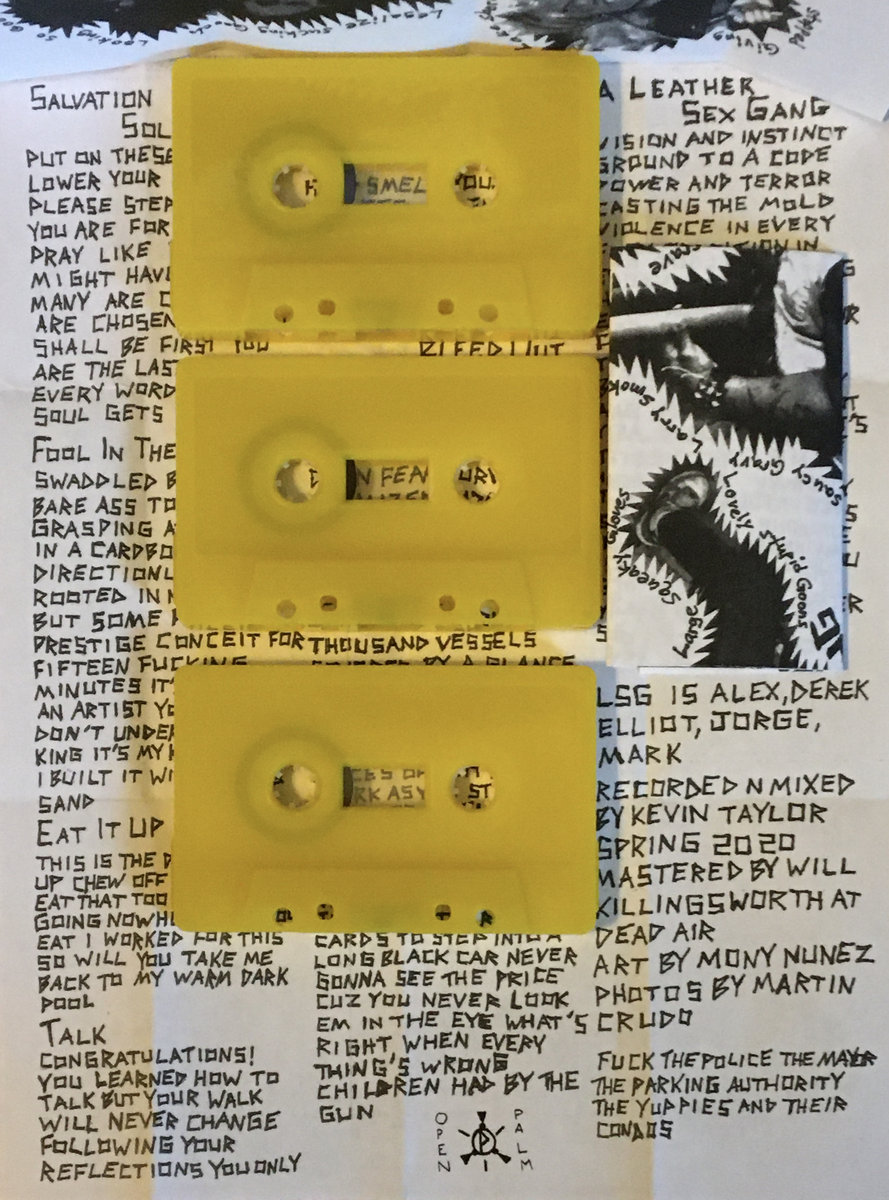 Legalize
SALVATION
SOL
PUT ON THESE
LOWER YOUR
PLEASE STEP
YOU ARE FOR
PRAY LIKE
MIGHT HAVE
MANY ARE C
ARE CHOSEN
SHALL BE FIRST YOU
ARE THE LAST
EVERY WORD
SOUL GETS
FOOL IN THE
SWADDLED B
BARE ASS TO
GRASPING A
IN A CARDBO
DIRECTIONL
ROOTED IN
BUT SOME
PRESTIGE CONCEIT FOR
FIFTEEN FUCKING
MINUTES IT'
AN ARTIST YO
DON'T UNDE
KING IT'S MY
I BUILT IT WI
SAND
EAT IT UP
THIS IS THE
UP CHEW OFF
EAT THAT TOO
GOING NOWH
EAT I WORKED FOR THIS
SO WILL YOU TAKE ME
BACK TO MY WARM DARK
POOL
TALK
CONGRATULATIONS!
YOU LEARNED HOW TO
TALK BUT YOUR WALK
WILL NEVER CHANGE
FOLLOWING YOUR
REFLECTIONS YOU ONLY
SMEL
YOU.
BLEED OUT
N FEA
URI
THOUSAND VESSELS
BY A GLANCE
CES OF
RK ASY
ST
CARDS TO STEP INTO A
LONG BLACK CAR NEVER
GONNA SEE THE PRICE
CUZ YOU NEVER LOOK
EM IN THE EYE WHAT'S
RIGHT WHEN EVERY
THING'S WRONG
CHILDREN HAD BY THE
GUN
OPEN PALM
A LEATHER
SEX GANG
VISION AND INSTINCT
GROUND TO A CODE
POWER AND TERROR
CASTING THE MOLD
VIOLENCE IN EVERY
IN
Larry Smoke
Saucy Gravy
Lovely
Stupid Goons
Squeaky Gloves
Large
LSG IS ALEX, DEREK
ELLIOT, JORGE,
MARK
RECORDED N MIXED
BY KEVIN TAYLOR
SPRING 2020
MASTERED BY WILL
KILLINGSWORTH AT
DEAD AIR
ART BY MONY NUNEZ
PHOTOS BY MARTIN
CRUDO
FUCK THE POLICE THE MAYOR
THE PARKING AUTHORITY
THE YUPPIES AND THEIR
CONDOS